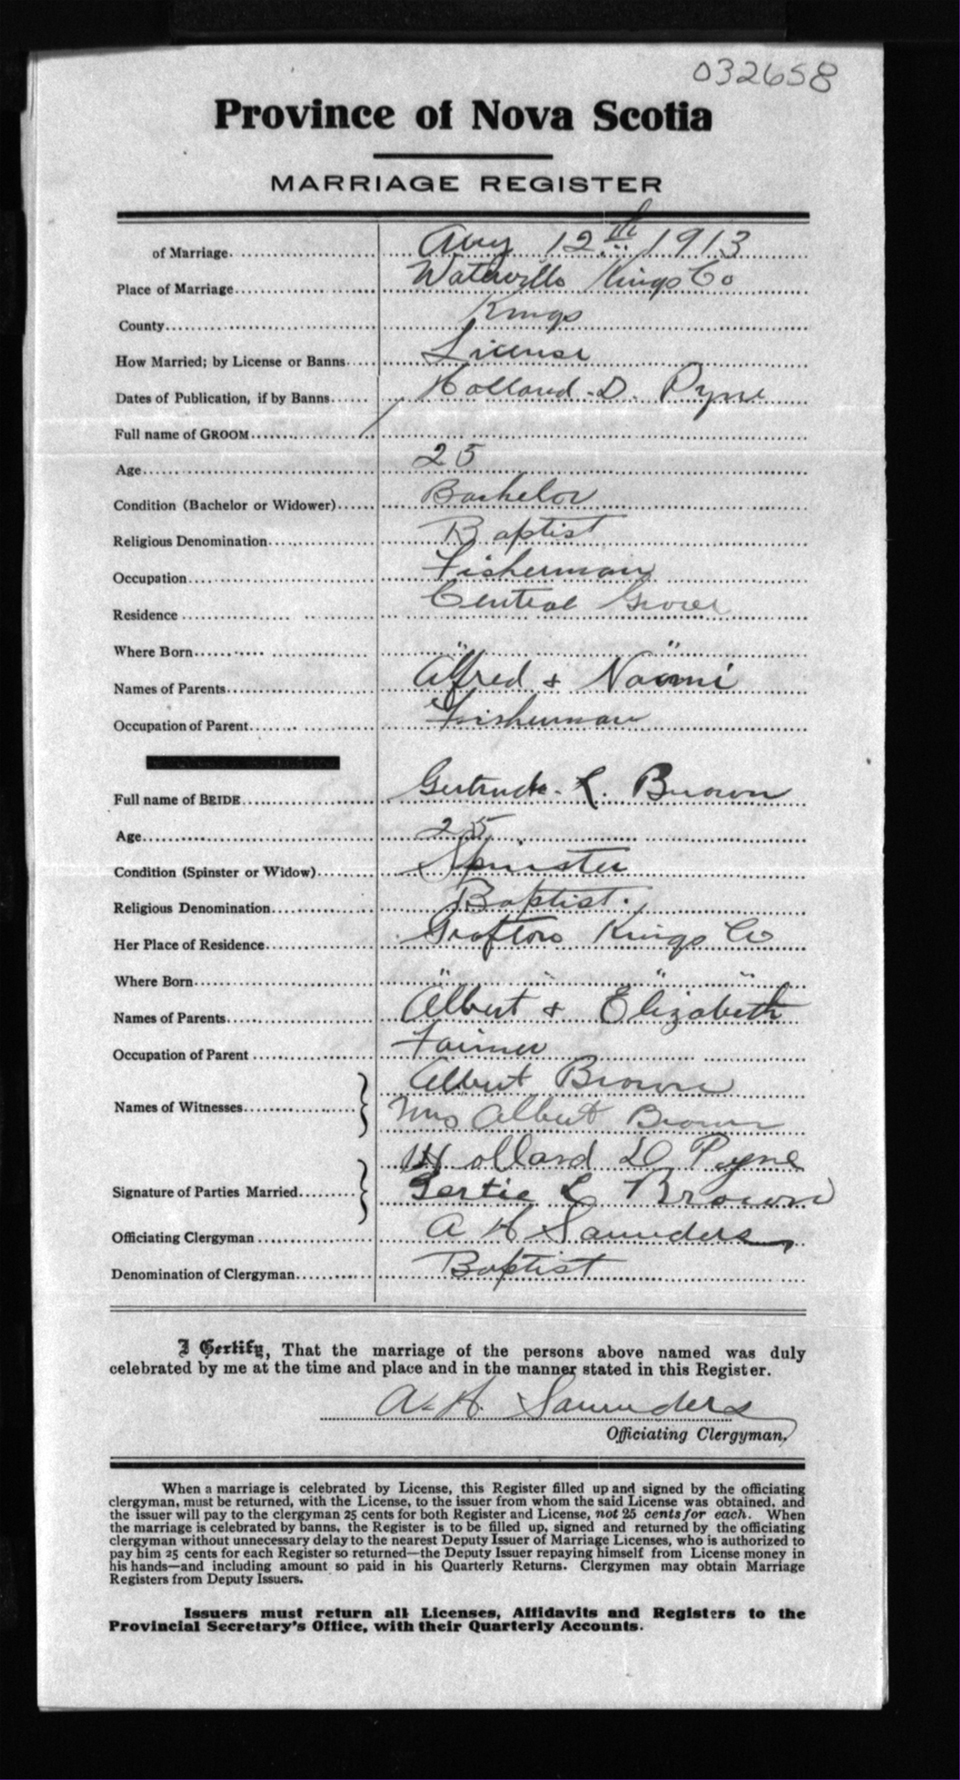 032658
Province of Nova Scotia
MARRIAGE REGISTER
of Marriage Aug 12th 1913
Place of Marriage Waterville Kings Co
County Kings
How Married; by License or Banns License
Dates of Publication, if by Banns Holland D. Pyne
Full name of GROOM
Age 25
Condition (Bachelor or Widower) Bachelor
Religious Denomination Baptist
Occupation Fisherman
Residence Central Grove
Where Born " "
Names of Parents Alfred & Naomi
Occupation of Parent Fisherman
Full name of BRIDE Gertrude L. Brown
Age 25
Condition (Spinster or Widow) Spinster
Religious Denomination Baptist.
Her Place of Residence Grafton Kings Co
Where Born " " " "
Names of Parents Albert & Elizabeth
Occupation of Parent Farmer
Albert Brown
Names of Witnesses
Mrs Albert Brown
Holland D Pyne
Signature of Parties Married Gertie L Brown
Officiating Clergyman A H Saunders
Denomination of Clergyman Baptist
I Certify, That the marriage of the persons above named was duly
celebrated by me at the time and place and in the manner stated in this Register.
A. H. Saunders
Officiating Clergyman,
When a marriage is celebrated by License, this Register filled up and signed by the officiating
clergyman, must be returned, with the License, to the issuer from whom the said License was obtained, and
the issuer will pay to the clergyman 25 cents for both Register and License, not 25 cents for each. When
the marriage is celebrated by banns, the Register is to be filled up, signed and returned by the officiating
clergyman without unnecessary delay to the nearest Deputy Issuer of Marriage Licenses, who is authorized to
pay him 25 cents for each Register so returned—the Deputy Issuer repaying himself from License money in
his hands—and including amount so paid in his Quarterly Returns. Clergymen may obtain Marriage
Registers from Deputy Issuers.
Issuers must return all Licenses, Affidavits and Registers to the
Provincial Secretary's Office, with their Quarterly Accounts.